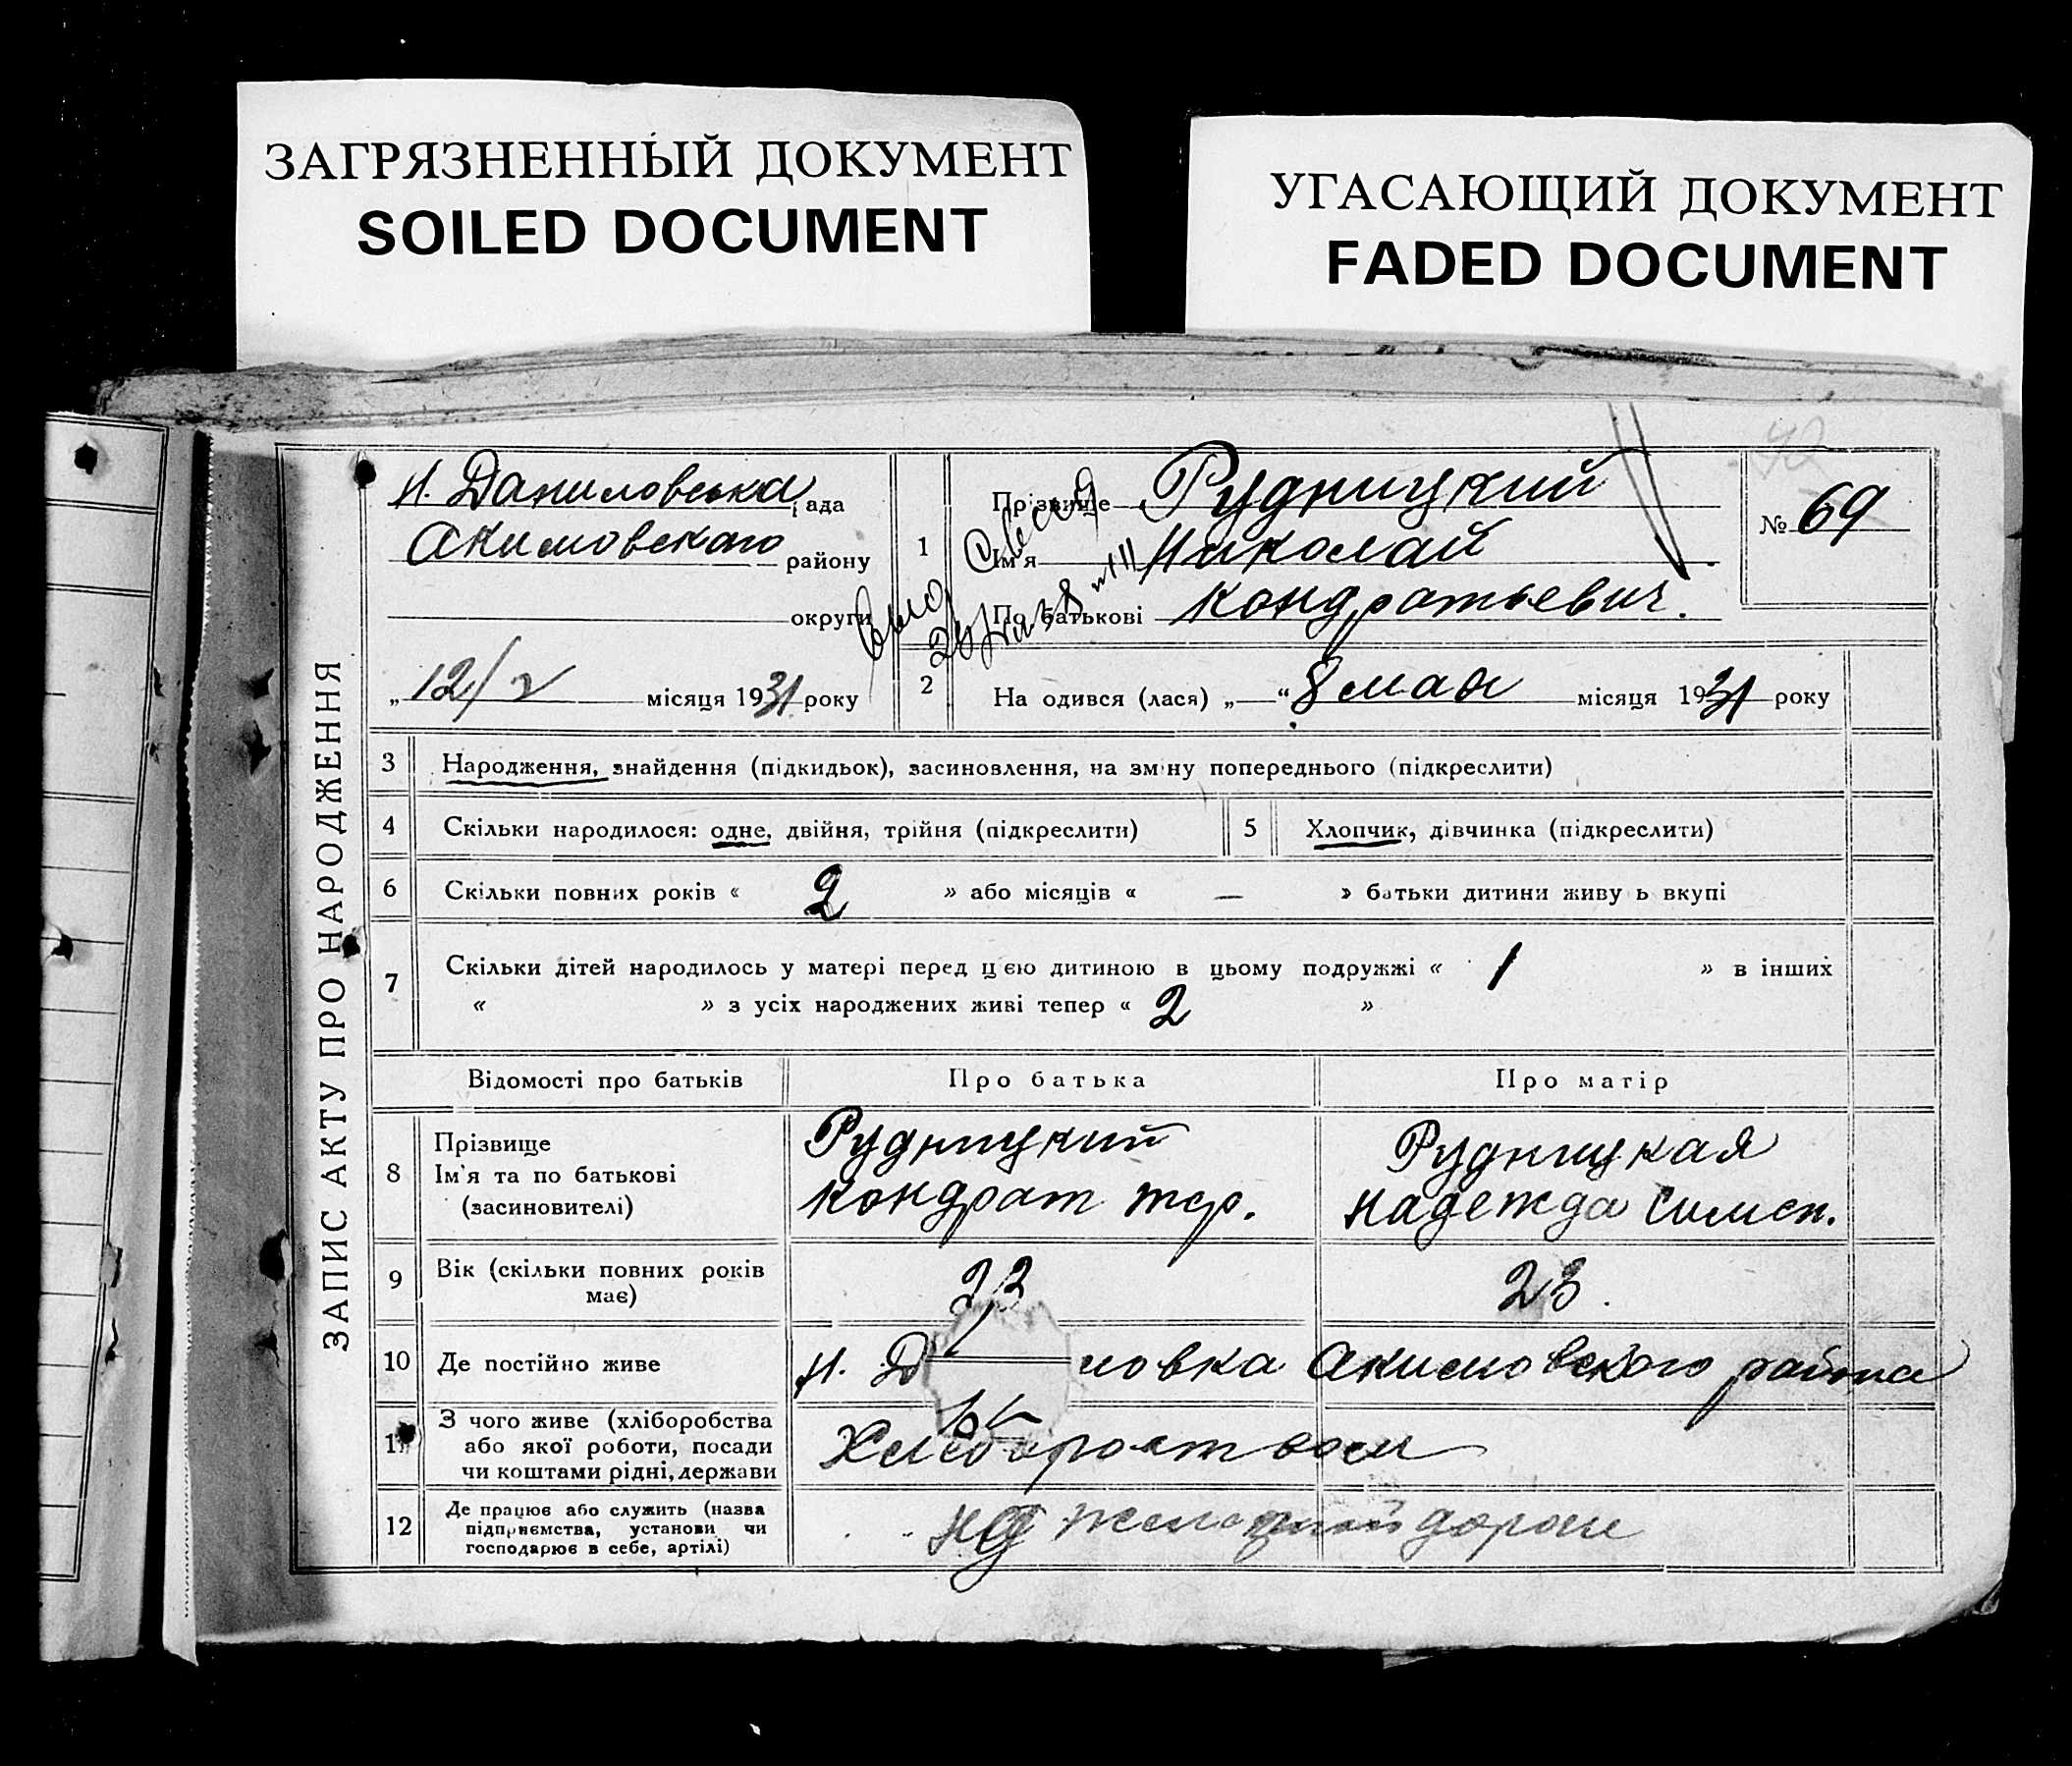 ЗАГРЯЗНЕННЫЙ ДОКУМЕНТ
SOILED DOCUMENT
УГАСАЮЩИЙ ДОКУМЕНТ
FADED DOCUMENT
ЗАПИС АКТУ ПРО НАРОДЖЕННЯ
Н. Даниловська ада
Акимовского району
округи
„ 12/V місяця 1931 року
1 Прізвище Рудницкий
Ім'я Николай
По батькові Кондратьевич.
№ 69
2 На одився (лася) „ “ 8 мая місяця 1931 року
3 Народження, знайдення (підкидьок), засиновлення, на зміну попереднього (підкреслити)
4 Скільки народилося: одне, двійня, трійня (підкреслити) 5 Хлопчик, дівчинка (підкреслити)
6 Скільки повних років « 2 » або місяців « — » батьки дитини живу ь вкупі
7 Скільки дітей народилось у матері перед цією дитиною в цьому подружжі « 1 » в інших
« » з усіх народжених живі тепер « 2 »
Відомості про батьків Про батька Про матір
8 Прізвище Рудницкий Рудницкая
Ім'я та по батькові Кондрат Надежда Симен.
(засиновителі)
9 Вік (скільки повних років 22 23.
має)
10 Де постійно живе Н. Д ловка Акимовского района
11 З чого живе (хліборобства
або якої роботи, посади
чи коштами рідні, держави
12 Де працює або служить (назва
підприємства, установи чи
господарює в себе, артілі)
на дороге